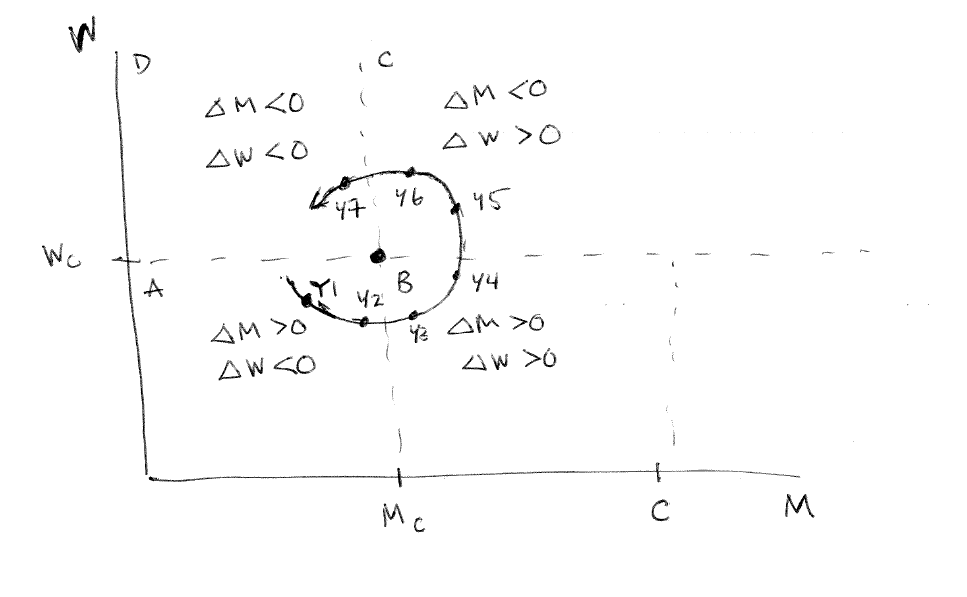 W
D
C
ΔM<0
ΔM<0
ΔW<0
ΔW>0
y7
y6
y5
Wc
A
Y1
y2
B
y4
y3
ΔM>0
ΔM>0
ΔW<0
ΔW>0
Mc
C
M